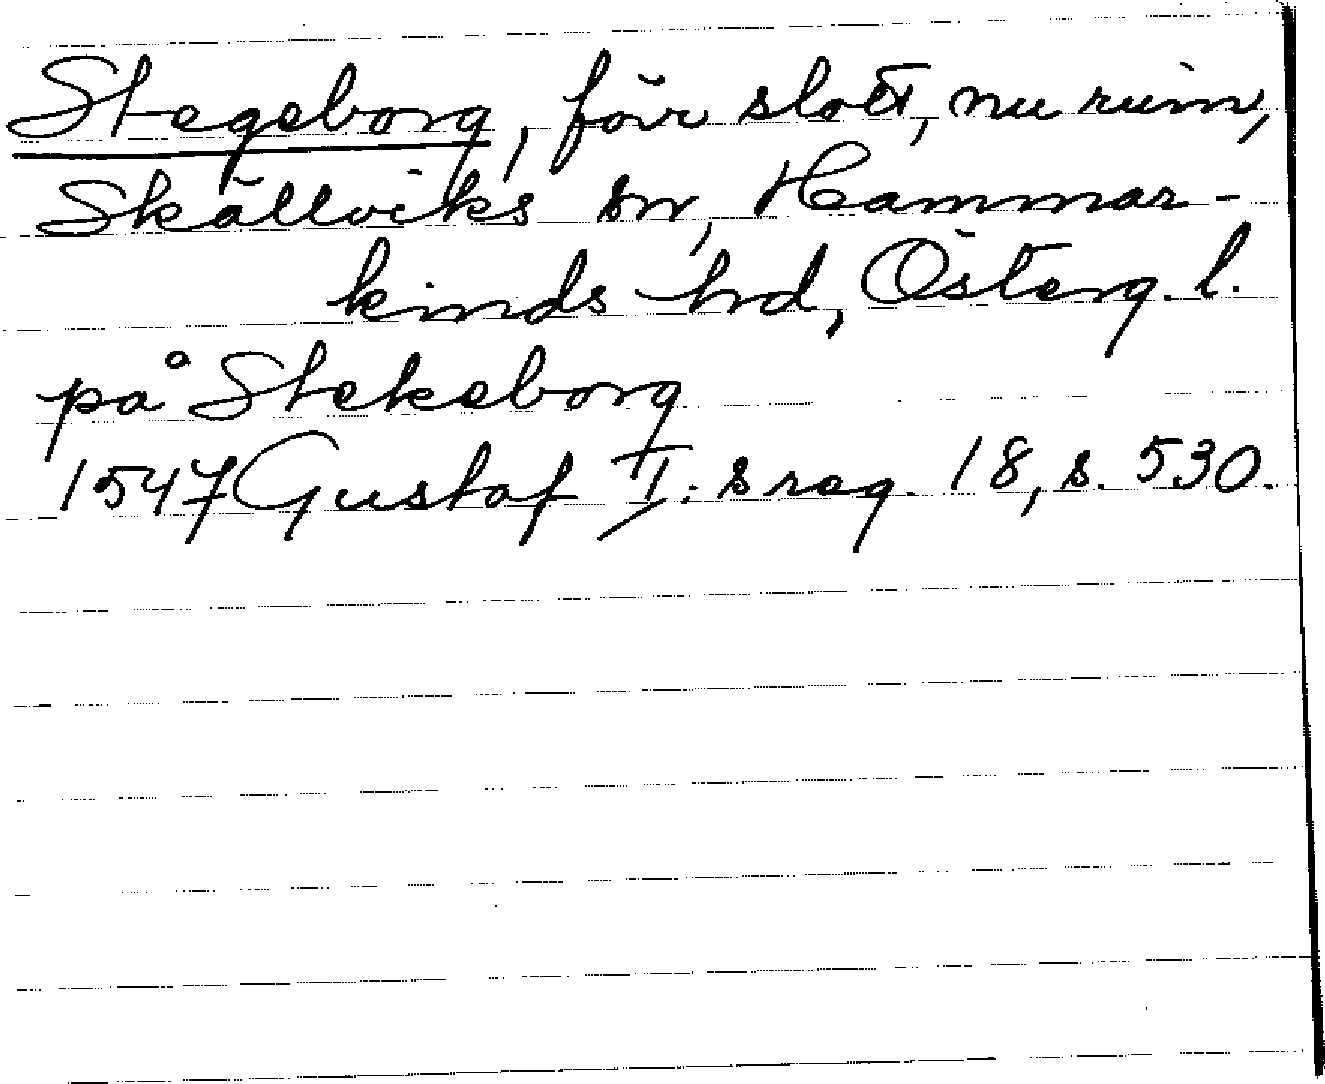 Stegeborg, förr slott, nu ruin,
Skällviks sn, Hammar-
kinds hd, Österg. l.
på Stekeborg
1547 Gustaf I:s reg. 18, s. 530.